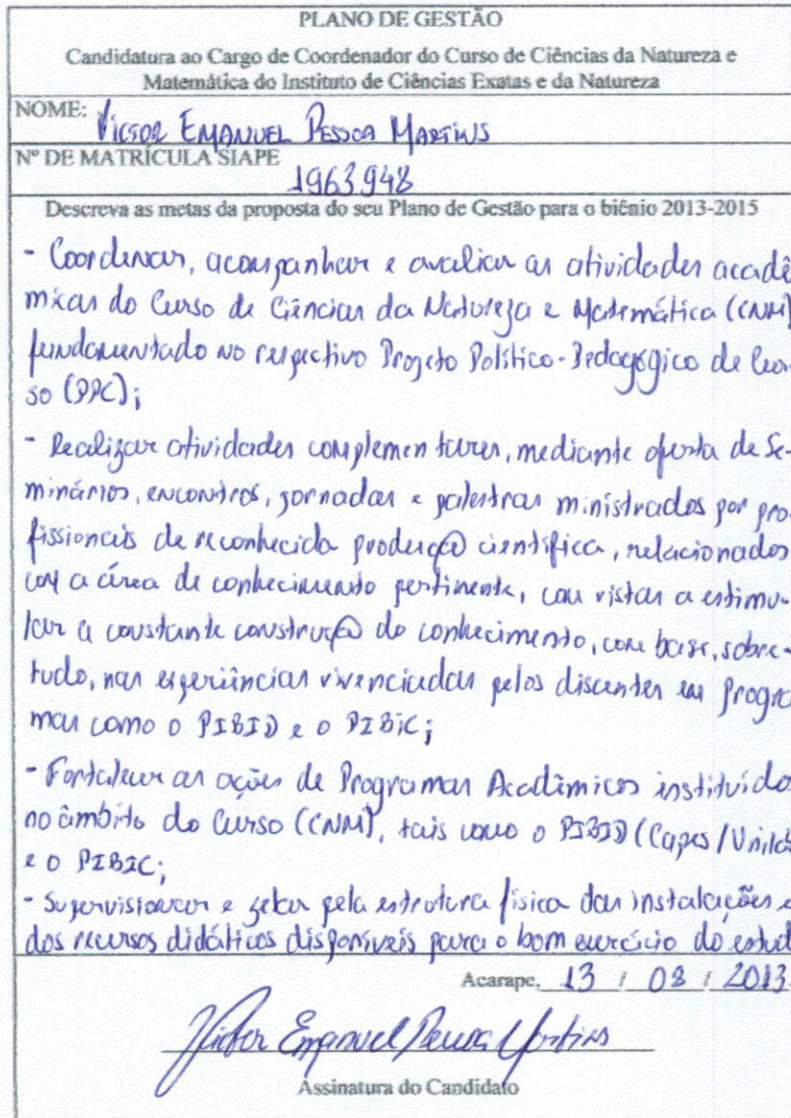 PLANO DE GESTÃO
Candidatura ao Cargo de Coordenador do Curso de Ciências da Natureza e
Matemática do Instituto de Ciências Exatas e da Natureza
NOME: Victor Emanuel Pessoa Martins
Nº DE MATRÍCULA SIAPE
1963948
Descreva as metas da proposta do seu Plano de Gestão para o biênio 2013-2015
- Coordenar, acompanhar e avaliar as atividades acadê
micas do Curso de Ciências da Natureza e Matemática (CNM)
fundamentado no respectivo Projeto Político-Pedagógico de Cur-
so (PPC);
- Realizar atividades complementares, mediante oferta de Se-
minários, encontros, jornadas e palestras ministrados por pro-
fissionais de reconhecida produção científica, relacionados
com a área de conhecimento pertinente, com vistas a estimu-
lar a constante construção do conhecimento, com base, sobre-
tudo, nas experiências vivenciadas pelos discentes em progra
mas como o PIBID e o PIBIC;
- Fortalecer as ações de Programas Acadêmicos instituídos
no âmbito do Curso (CNM), tais como o PIBID (Capes/Unilab
e o PIBIC;
- Supervisionar e zelar pela estrutura física das instalações e
dos recursos didáticos disponíveis para o bom exercício do estud
Acarape, 13 / 08 / 2013.
Victor Emanuel Pessoa Martins
Assinatura do Candidato